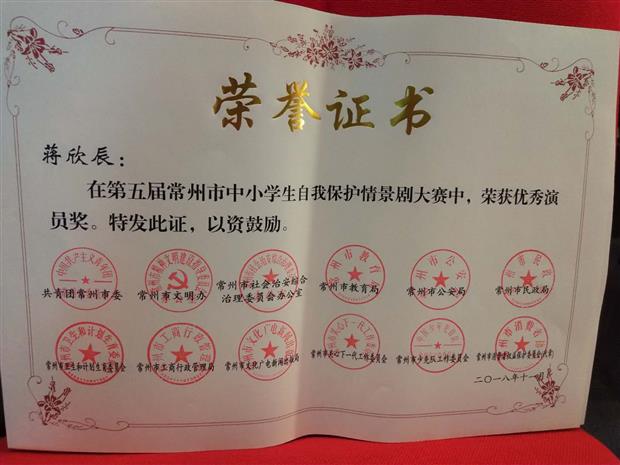 荣誉证书
蒋欣辰：
在第五届常州市中小学生自我保护情景剧大赛中，荣获优秀演
员奖。特发此证，以资鼓励。
共青团常州市委 常州市文明办 常州市社会治安综合治理委员会办公室 常州市教育局 常州市公安局 常州市民政局
常州市卫生和计划生育委员会 常州市工商行政管理局 常州市文化广电新闻出版局 常州市关心下一代工作委员会 常州市少先队工作委员会
二〇一八年十一月